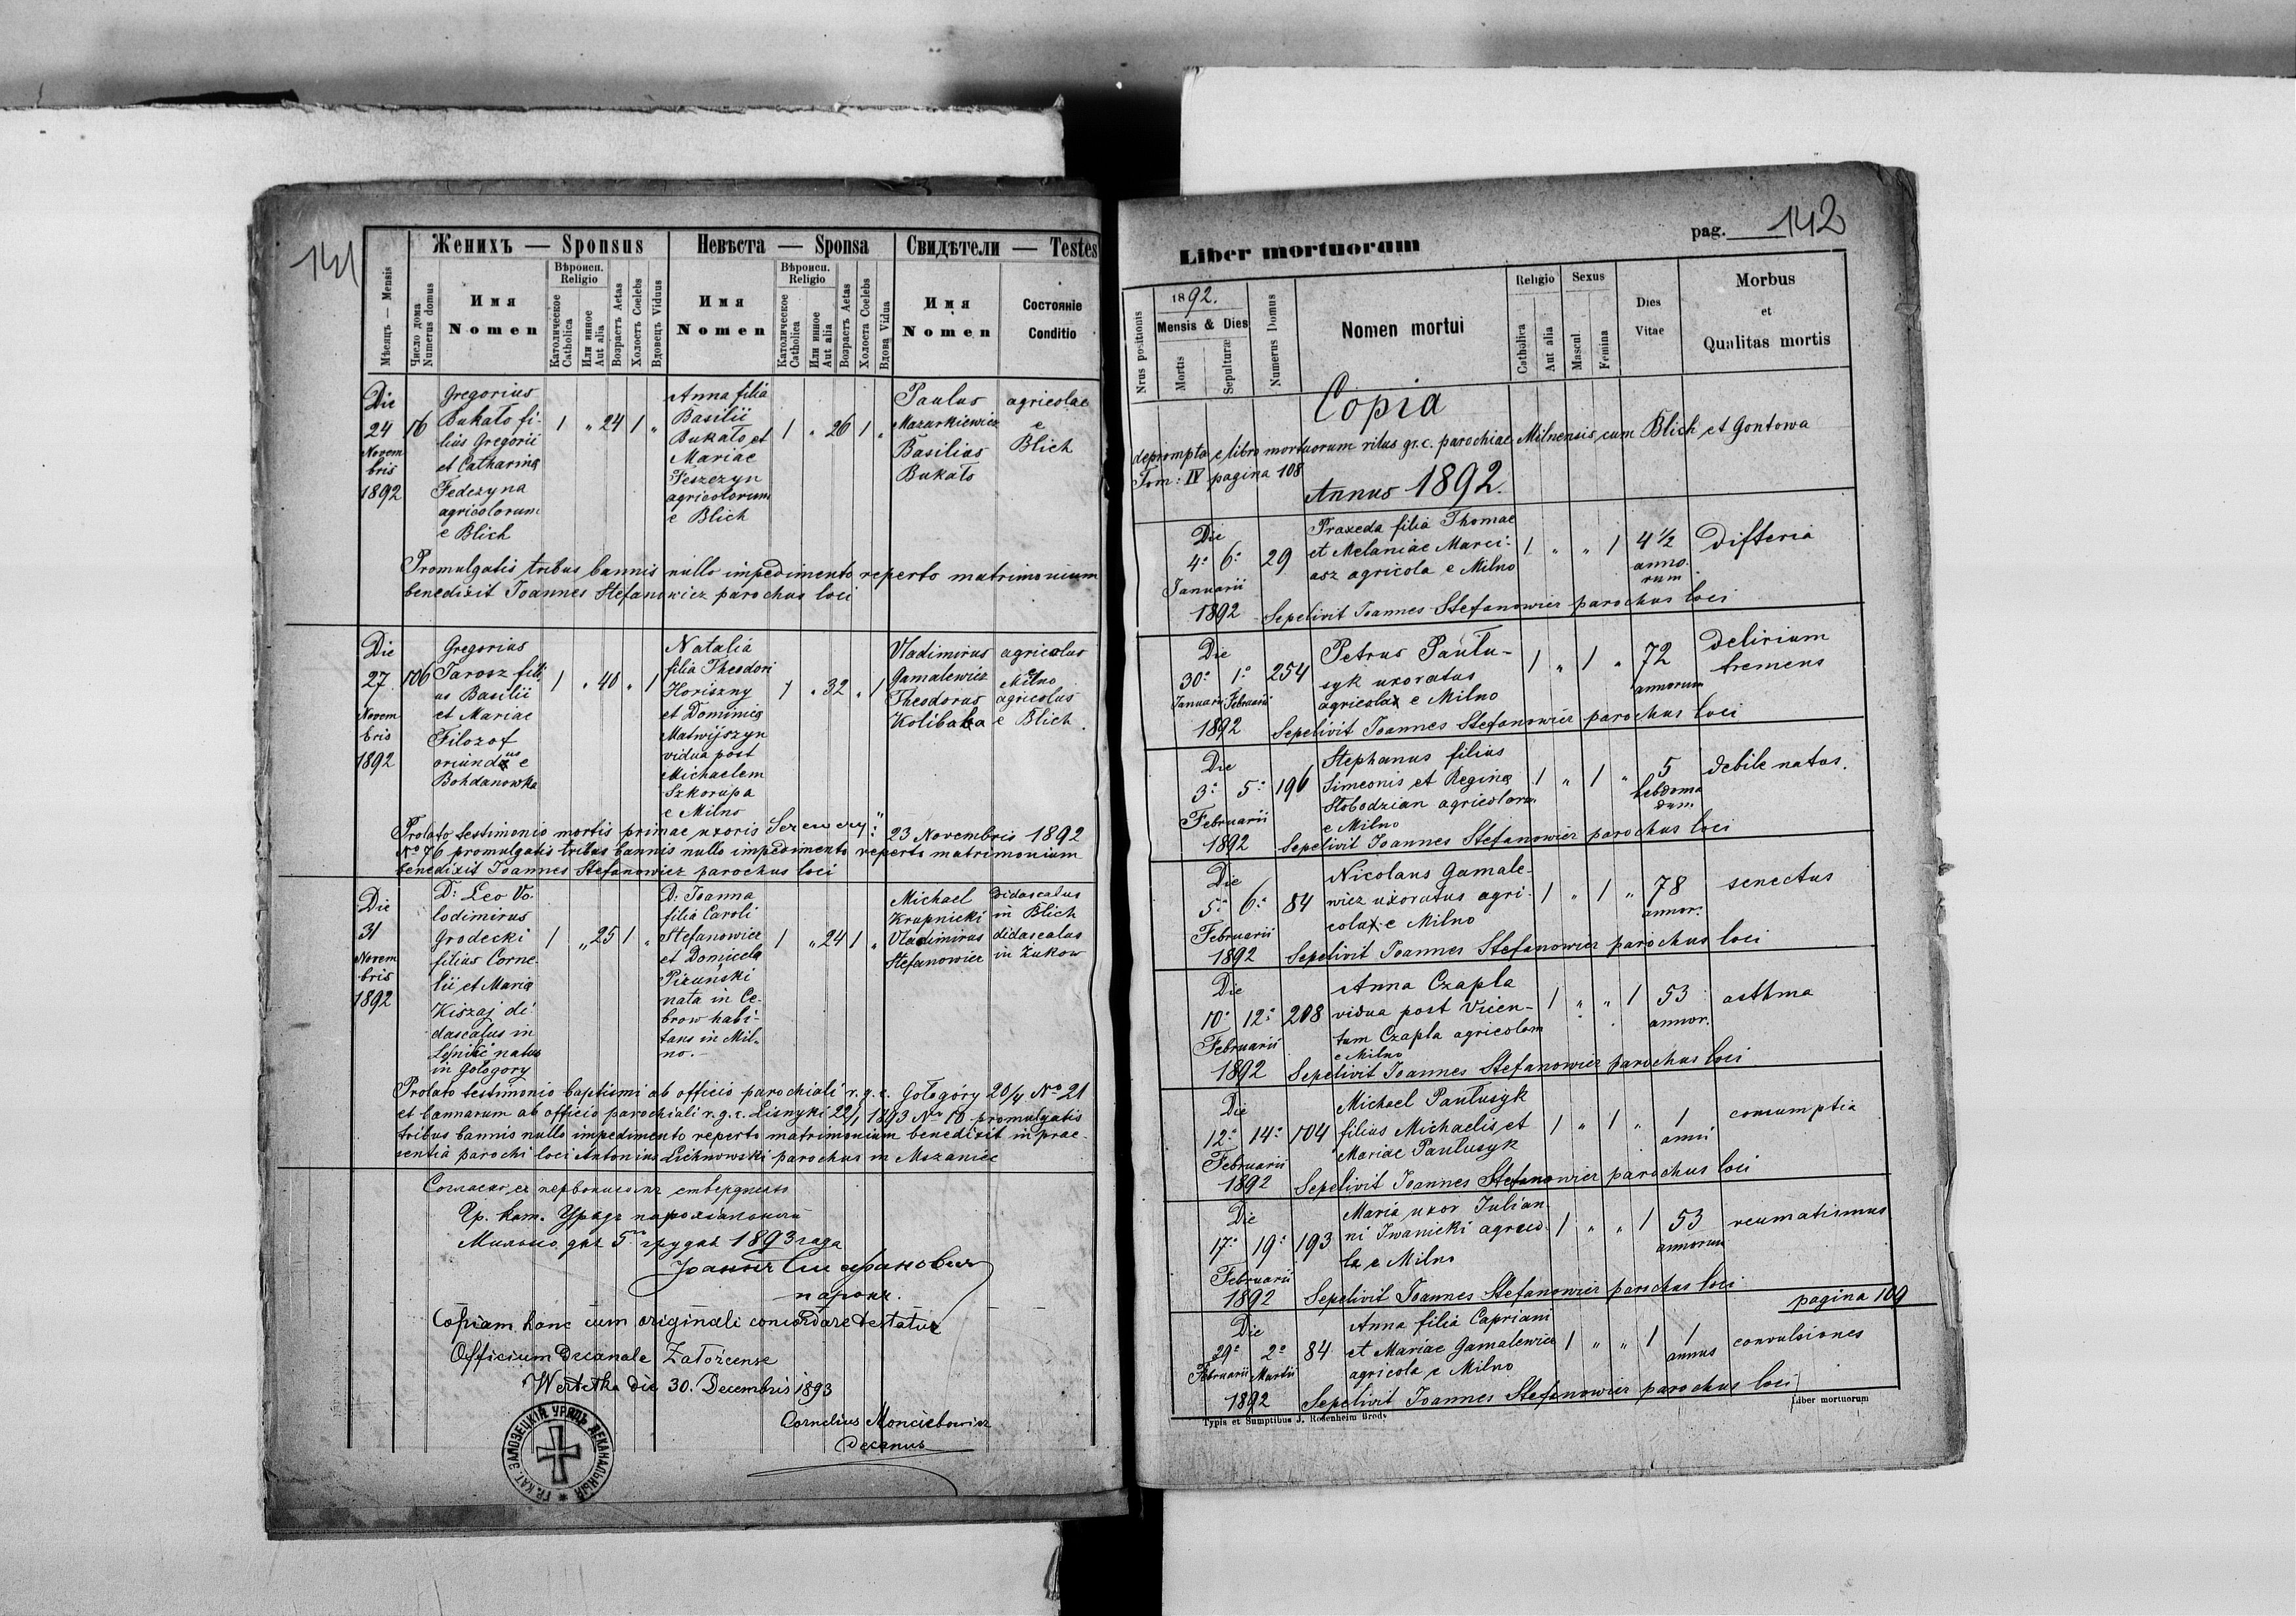 141
Женихъ — Sponsus
Невѣста — Sponsa
Свидѣтели — Testes
Мѣсяцъ — Mensis
Число дома
Numerus domus
Имя
Nomen
Вѣроисп.
Religio
Католическое
Catholica
Или инное
Aut alia
Возрастъ Aetas
Холостъ Coelebs
Вдовецъ Viduus
Имя
Nomen
Вѣроисп.
Religio
Католическое
Catholica
Или инное
Aut alia
Возрастъ Aetas
Холоста Coelebs
Вдова Vidua
Имя
Nomen
Состояніе
Conditio
Die
24
Novem
bris
1892
16
Gregorius
Bukało fi-
lius Gregorii
et Catharina
Fedczyna
agricolorum
e Blich
1 „ 24 1 „
Anna filia
Basilii
Bukało et
Mariae
Feszczyn
agricolorum
e Blich
1 „ 26 1 „
Paulus
Mazurkiewicz
Basilius
Bukało
agricolae
e
Blich
Promulgatis tribus bannis nullo impedimento reperto matrimonium
benedixit Joannes Stefanowicz parochus loci
Die
27
Novem
bris
1892
106
Gregorius
Jarosz fili
us Basilii
et Mariae
Filozof
oriundus e
Bohdanowka
1 „ 40 „ 1
Natalia
filia Theodori
Horiszny
et Dominica
Matwijszyn
vidua post
Michaelem
Szkorupa
e Milno
1 „ 32 „ 1
Vladimirus
Gamalewicz
Theodorus
Kolibaba
agricolus
e
Milno
agricolus
e Blich
Prolato testimonio mortis primae uxoris 23 Novembris 1892
No 76 promulgatis tribus bannis nullo impedimento reperto matrimonium
benedixit Joannes Stefanowicz parochus loci
Die
31
Novem
bris
1892
D: Leo Vo.
lodimirus
Grodecki
filius Corne-
lii et Maria
Kiszaj di
dascalus in
natus
in Gołogory
1 „ 25 1 „
D: Joanna
filia Caroli
Stefanowicz
et Domicela
Pizuński
nata in Ce-
brow habi-
tans in Mil-
no.-
1 „ 24 1 „
Michael
Krupnicki
Vladimirus
Stefanowicz
didascalus
in Blich
didascalus
in Żukow
Prolato testimonio baptismi ab officio parochiali r.g.c. Gołogóry 20/4 No 21
et bannarum ab officio parochiali r.g.c. Lisnyki 22/1 1893 No 10 promulgatis
tribus bannis nullo impedimento reperto matrimonium benedixit in prae-
sentia parochi loci Antonius Lichnowski parochus in Mszaniec
Гр. кат. Урядъ парохіяльный
Мильно дня 5го грудня 1893 года
Іоаннъ Стефановичъ
парохъ.
Copiam hanc cum originali concordare testatur
Officium Decanale Założcense
Wertełka die 30. Decembris 1893
Cornelius Monciebowicz
Decanus
ГР. КАТ. ЗАЛОЗЕЦКІЙ УРЯДЪ ДЕКАНАЛЬНЫЙ
Liber mortuorum
pag. 142
Nrus positionis
1892.
Mensis & Dies
Mortis
Sepulturæ
Numerus Domus
Nomen mortui
Religio
Catholica
Aut alia
Sexus
Mascul.
Femina
Dies
Vitae
Morbus
et
Qualitas mortis
Copia
deprompta e libro mortuorum ritus gr.c. parochiae Milnensis cum Blich et Gontowa
Tom: IV pagina 108
Annus 1892.
Die
4. 6.
Januarii
1892
29
Praxeda filia Thomae
et Melaniae Marci-
asz agricola e Milno
1 „ „ 1
4½
anno.
rum
difteria
Sepelivit Joannes Stefanowicz parochus loci
Die
30. 1.
Januarii Februarii
1892
254
Petrus Pautu-
syk uxoratus
agricola e Milno
1 „ 1 „
72
annorum
delirium
tremens
Sepelivit Joannes Stefanowicz parochus loci
Die
3. 5.
Februarii
1892
196
Stephanus filius
Simeonis et Regina
Słobodzian agricolarum
e Milno
1 „ 1 „
5
hebdoma
dum
debile natus.
Sepelivit Joannes Stefanowicz parochus loci
Die
5. 6.
Februarii
1892
84
Nicolaus Gamale-
wicz uxoratus agri-
cola e Milno
1 „ 1 „
78
annor.
senectus
Sepelivit Joannes Stefanowicz parochus loci
Die
10. 12.
Februarii
1892
208
Anna Czapla
vidua post Vicen-
tum Czapla agricolam
e Milno
1 „ „ 1
53
annor.
asthma
Sepelivit Joannes Stefanowicz parochus loci
Die
12. 14.
Februarii
1892
104
Michael Pautusyk
filius Michaelis et
Mariae Pautusyk
1 „ 1 „
1
anni
consumptia
Sepelivit Joannes Stefanowicz parochus loci
Die
17. 19.
Februarii
1892
193
Maria uxor Julian
ni Iwanicki agrico-
la e Milno
1 „ „ 1
53
annorum
reumatismus
Sepelivit Joannes Stefanowicz parochus loci
pagina 109
Die
29. 2.
Februarii Martii
1892
84
Anna filia Capriani
et Mariae Gamalewicz
agricola e Milno
1 „ „ 1
1
annus
convulsiones
Sepelivit Joannes Stefanowicz parochus loci
Typis et Sumptibus J. Rosenheim Brody
Liber mortuorum